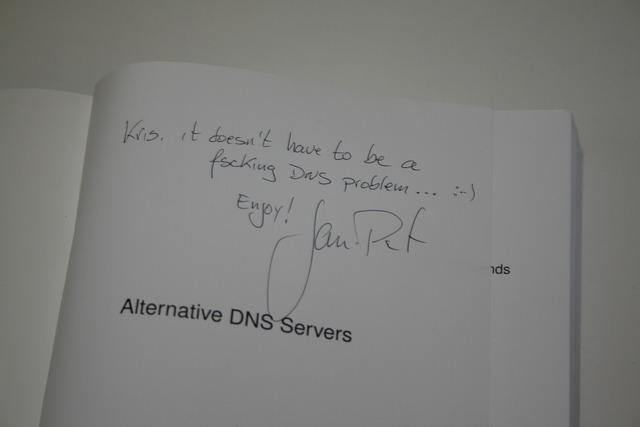 Kris, it doesn't have to be a
fscking DNS problem... :-)
Enjoy!
Jan-Piet
nds
Alternative DNS Servers